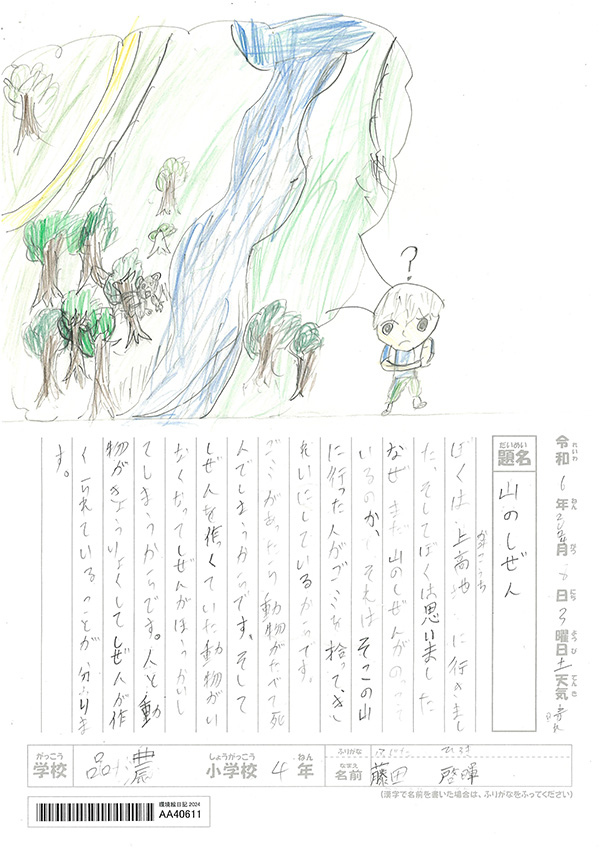 ?
令和6年 月8日3曜日土天気晴れ
れいわ ねん がつ にち ようび てんき
題名 山のしぜん
だいめい
ぼくは、上高地に行きまし
かみこうち
た。そしてぼくは思いました
なぜ まだ 山のしぜんがのこって
いるのか、それは そこの山
に行った人がゴミを拾って、き
れいにしているからです。
ゴミがあったら動物がたべて死
んでしまうからです。そして
しぜんを作くていた動物がい
なくなってしぜんがほうかいし
てしまうからです。人と動
物がきょうりょくしてしぜんが作
くられていることが分かりま
す。
がっこう しょうがっこう ねん ふりがな
学校 品濃 小学校 4年
なまえ
名前 藤田 啓暉
(漢字で名前を書いた場合は、ふりがなをふってください)
環境絵日記 2024
AA40611